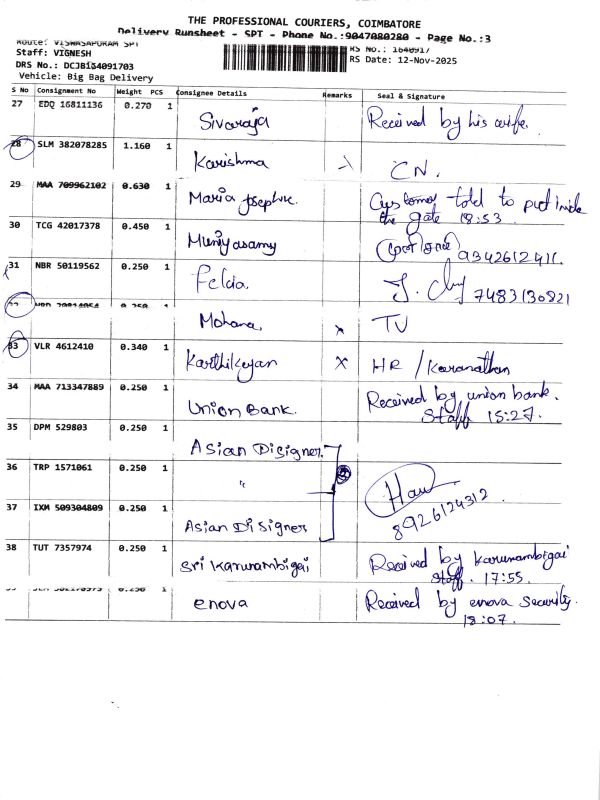 THE PROFESSIONAL COURIERS, COIMBATORE
Delivery Runsheet - SPT - Phone No.:9047080280 - Page No.:3
Route: VISWASAPURAM SPT
Staff: VIGNESH
RS No.: 1640917
DRS No.: DCJBIG4091703
RS Date: 12-Nov-2025
Vehicle: Big Bag Delivery
S No Consignment No Weight PCS Consignee Details Remarks Seal & Signature
27 EDQ 16811136 0.270 1 Sivaraja Received by his wife.
28 SLM 382078285 1.160 1 Karishma CN.
29 MAA 709962102 0.630 1 Maria Josephic. Customer told to put inside
the gate 18:53.
30 TCG 42017378 0.450 1 Muniyasamy 9342612411.
31 NBR 50119562 0.250 1 Felcia. 7483130821
Mohana, x TV
33 VLR 4612410 0.340 1 Karthikeyan x HR / Karanathan
34 MAA 713347889 0.250 1 Union Bank. Received by union bank.
Staff 15:27.
35 DPM 529803 0.250 1 Asian Disigner.
36 TRP 1571061 0.250 1 "
37 IXM 509304809 0.250 1 Asian Disigner 8926124312
38 TUT 7357974 0.250 1 Sri Karunambigai Received by Karunambigai
staff. 17:55.
enova Received by enova security.
18:07.